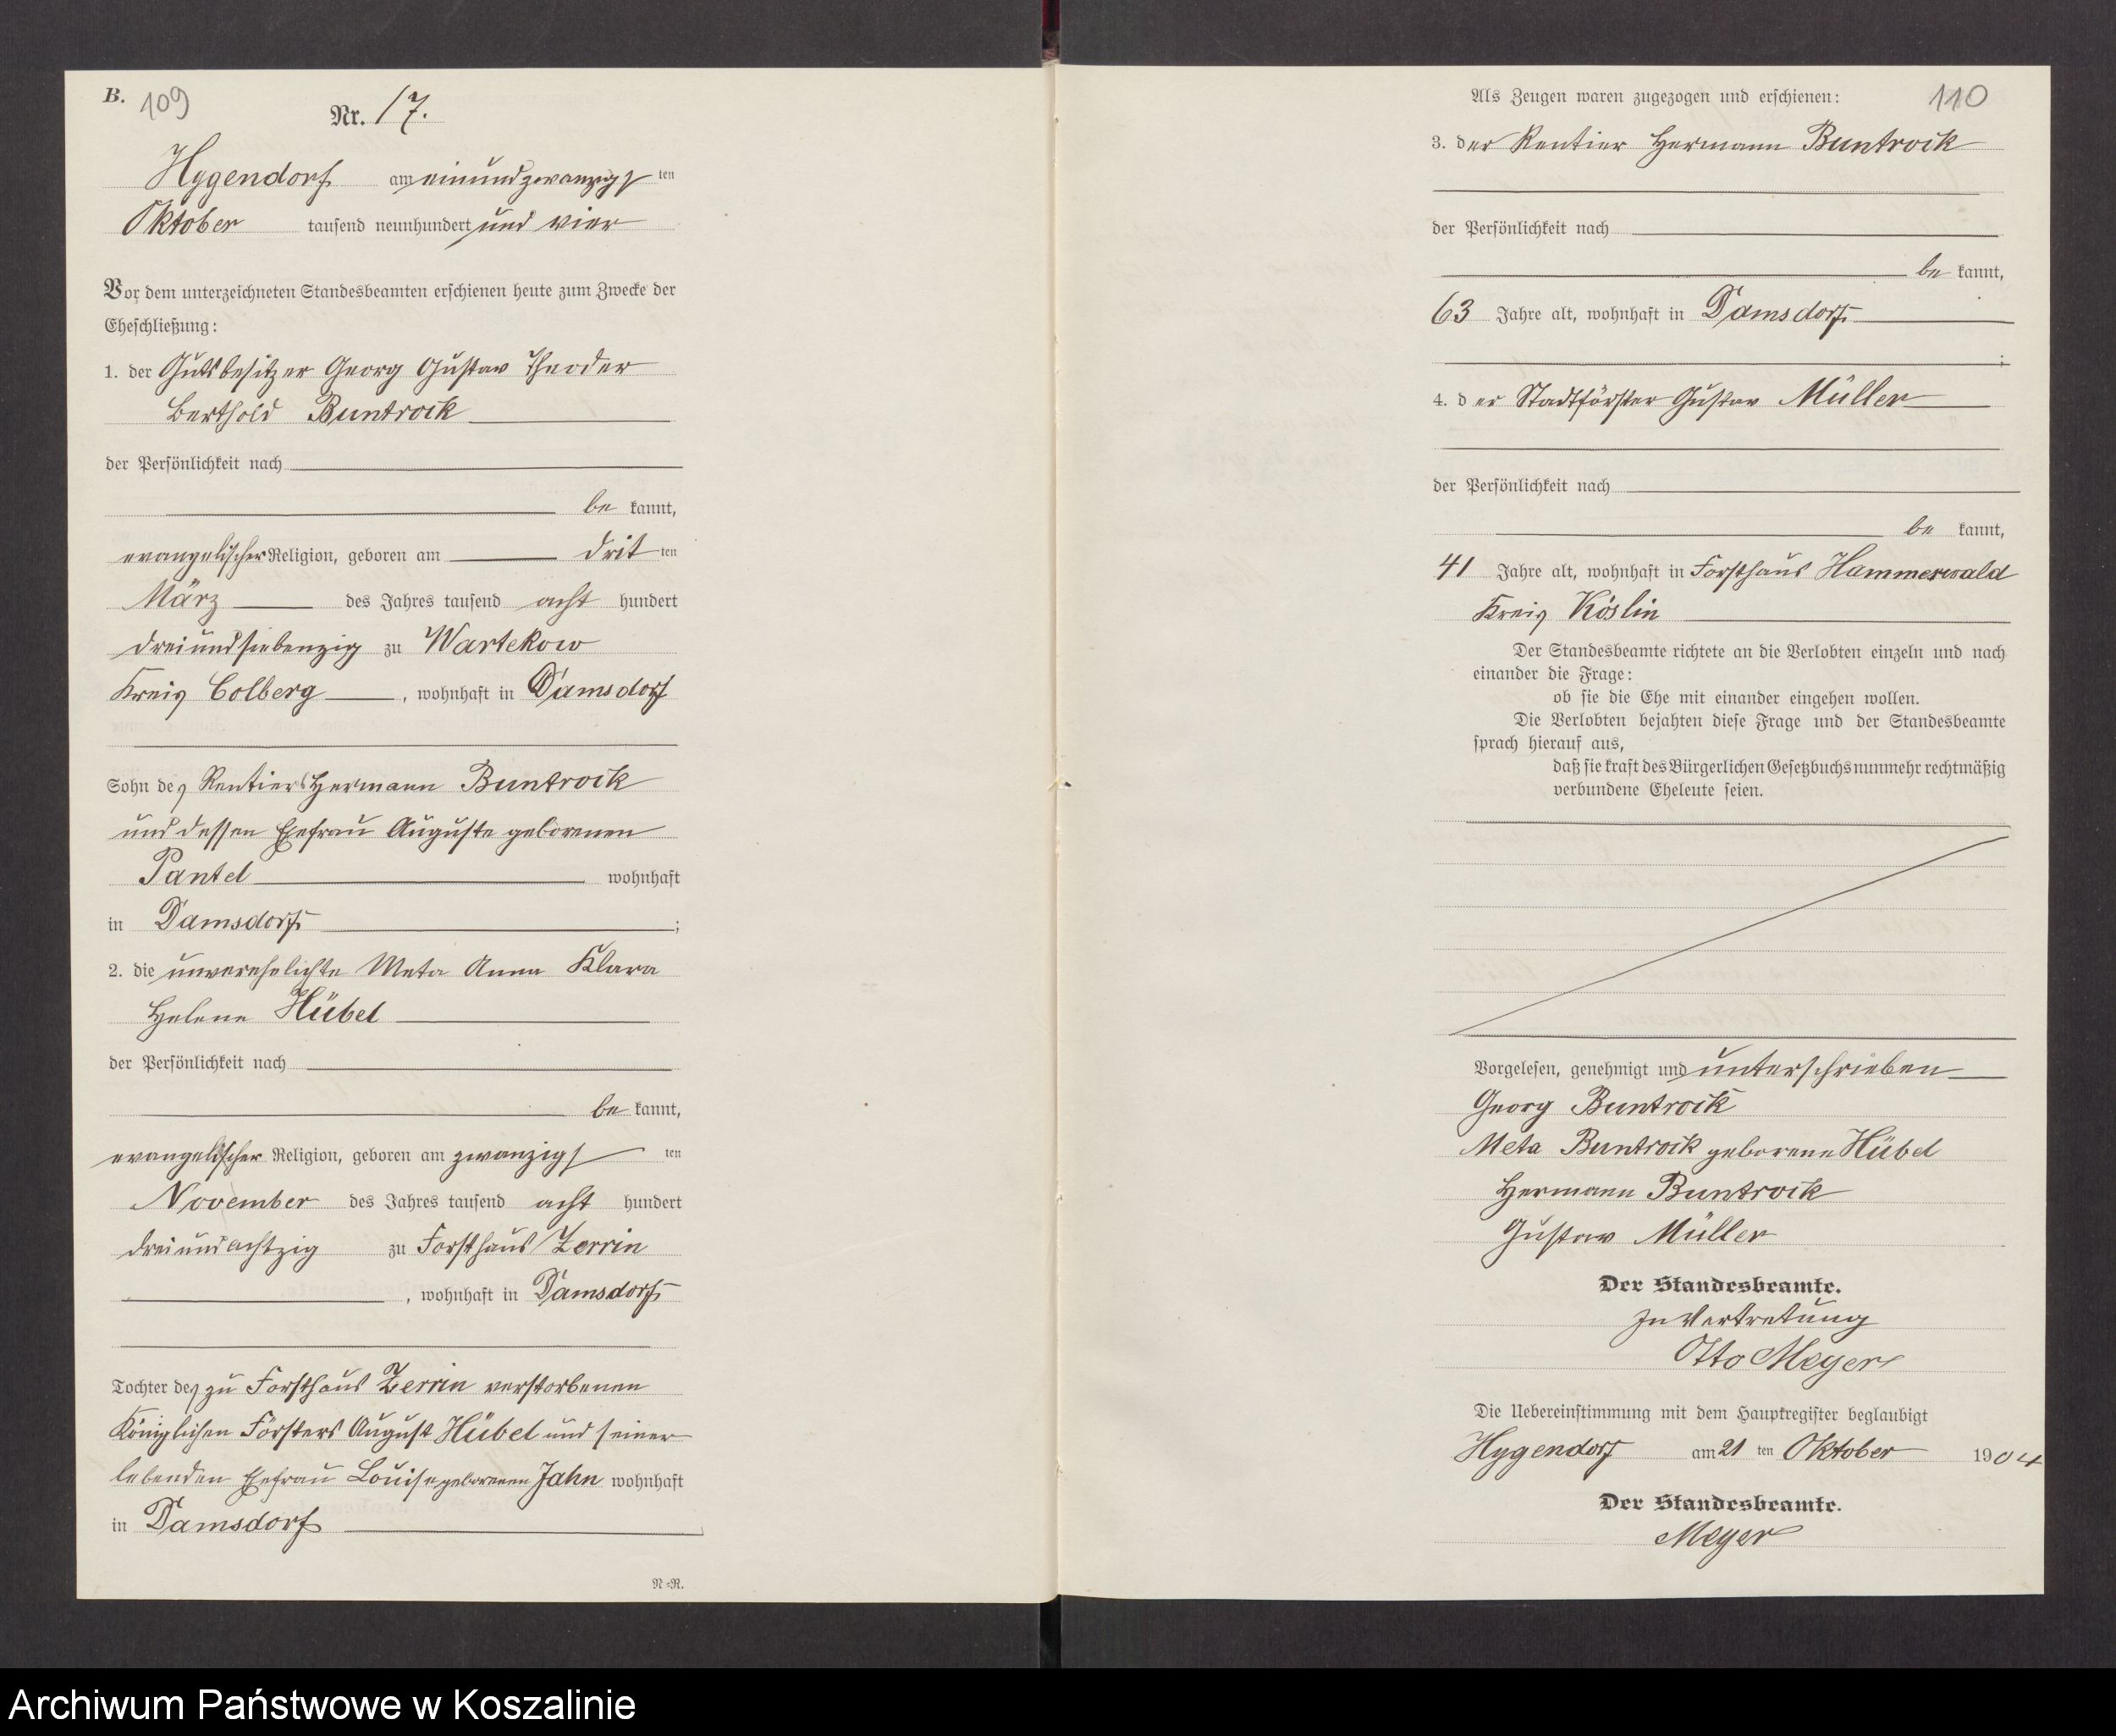 B. 109
Nr. 17.
Hygendorf am einundzwanzigsten
Oktober tausend neunhundert und vier
Vor dem unterzeichneten Standesbeamten erschienen heute zum Zwecke der
Eheschließung:
1. der Gutsbesitzer Georg Gustav Theodor
Berthold Buntrock
der Persönlichkeit nach
be kannt,
evangelischer Religion, geboren am dritten
März des Jahres tausend acht hundert
dreiundsiebenzig zu Wartekow
Kreis Colberg, wohnhaft in Damsdorf
Sohn des Rentiers Hermann Buntrock
und dessen Ehefrau Auguste geborenen
Pantel wohnhaft
in Damsdorf;
2. die unverehelichte Meta Anna Klara
Helene Hübel
der Persönlichkeit nach
be kannt,
evangelischer Religion, geboren am zwanzigsten
November des Jahres tausend acht hundert
dreiundachtzig zu Forsthaus Zerrin
, wohnhaft in Damsdorf
Tochter des zu Forsthaus Zerrin verstorbenen
Königlichen Försters August Hübel und seiner
lebenden Ehefrau Louise geborenen Jahn wohnhaft
in Damsdorf
N=R.
110
Als Zeugen waren zugezogen und erschienen:
3. der Rentier Hermann Buntrock
der Persönlichkeit nach
be kannt,
63 Jahre alt, wohnhaft in Damsdorf
;
4. der Stadtförster Gustav Müller
der Persönlichkeit nach
be kannt,
41 Jahre alt, wohnhaft in Forsthaus Hammerwald
Kreis Köslin
Der Standesbeamte richtete an die Verlobten einzeln und nach
einander die Frage:
ob sie die Ehe mit einander eingehen wollen.
Die Verlobten bejahten diese Frage und der Standesbeamte
sprach hierauf aus,
daß sie kraft des Bürgerlichen Gesetzbuchs nunmehr rechtmäßig
verbundene Eheleute seien.
Vorgelesen, genehmigt und unterschrieben
Georg Buntrock
Meta Buntrock geborene Hübel
Hermann Buntrock
Gustav Müller
Der Standesbeamte.
In Vertretung
Otto Meyer
Die Uebereinstimmung mit dem Hauptregister beglaubigt
Hygendorf am 21 ten Oktober 1904
Der Standesbeamte.
Meyer
Archiwum Państwowe w Koszalinie